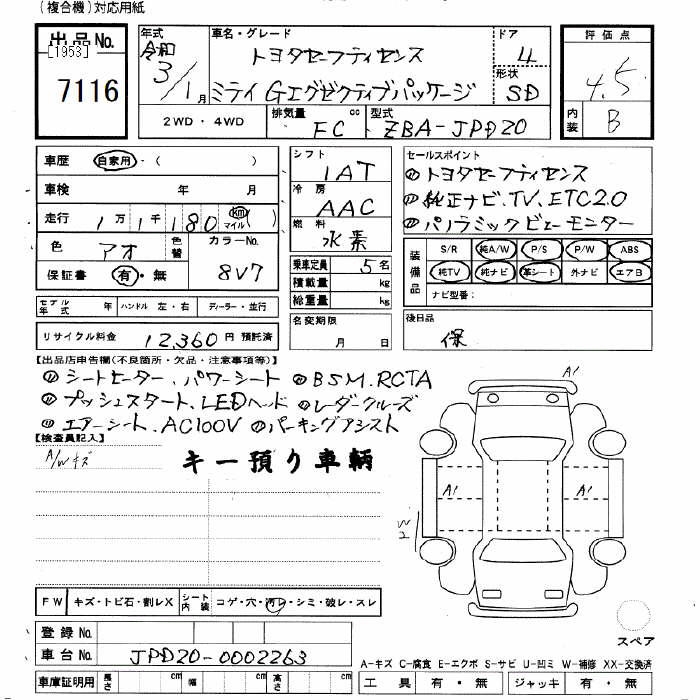 (複合機)対応用紙
出品No.
[1953]
7116
年式
令和
3/1月
車名・グレード
トヨタセーフティセンス
ミライ Gエグゼクティブパッケージ
ドア
4
形状
SD
評価点
4.5
内装
B
2WD・4WD
排気量 FC cc
型式 ZBA-JPD20
車歴 自家用・( )
車検 年 月
走行 1万1千180 km マイル ( )
色 アオ 色替
カラーNo. 8V7
保証書 有・無
モデル年式 年 ハンドル 左・右 ディーラー・並行
リサイクル料金 12,360円 預託済
シフト
IAT
冷房
AAC
燃料
水素
乗車定員 5名
積載量 kg
総重量 kg
名変期限
月 日
セールスポイント
トヨタセーフティセンス
純正ナビ.TV.ETC2.0
パノラミックビューモニター
装備品
S/R 純A/W P/S P/W ABS
純TV 純ナビ 革シート 外ナビ エアB
ナビ型番:
後日品
保
【出品店申告欄(不良箇所・欠品・注意事項等)】
シートヒーター、パワーシート BSM.RCTA
プッシュスタート、LEDヘッド レーダークルーズ
エアーシート、AC100V パーキングアシスト
【検査員記入】
A/Wキズ
キー預り車輌
A1
A1
A1
W2
FW キズ・トビ石・割レX シート内装 コゲ・穴・汚レ・シミ・破レ・スレ
登録No.
車台No. JPD20-0002263
車庫証明用 長さ cm 幅 cm 高さ cm
スペア
A-キズ C-腐食 E-エクボ S-サビ U-凹ミ W-補修 XX-交換済
工具 有・無 ジャッキ 有・無